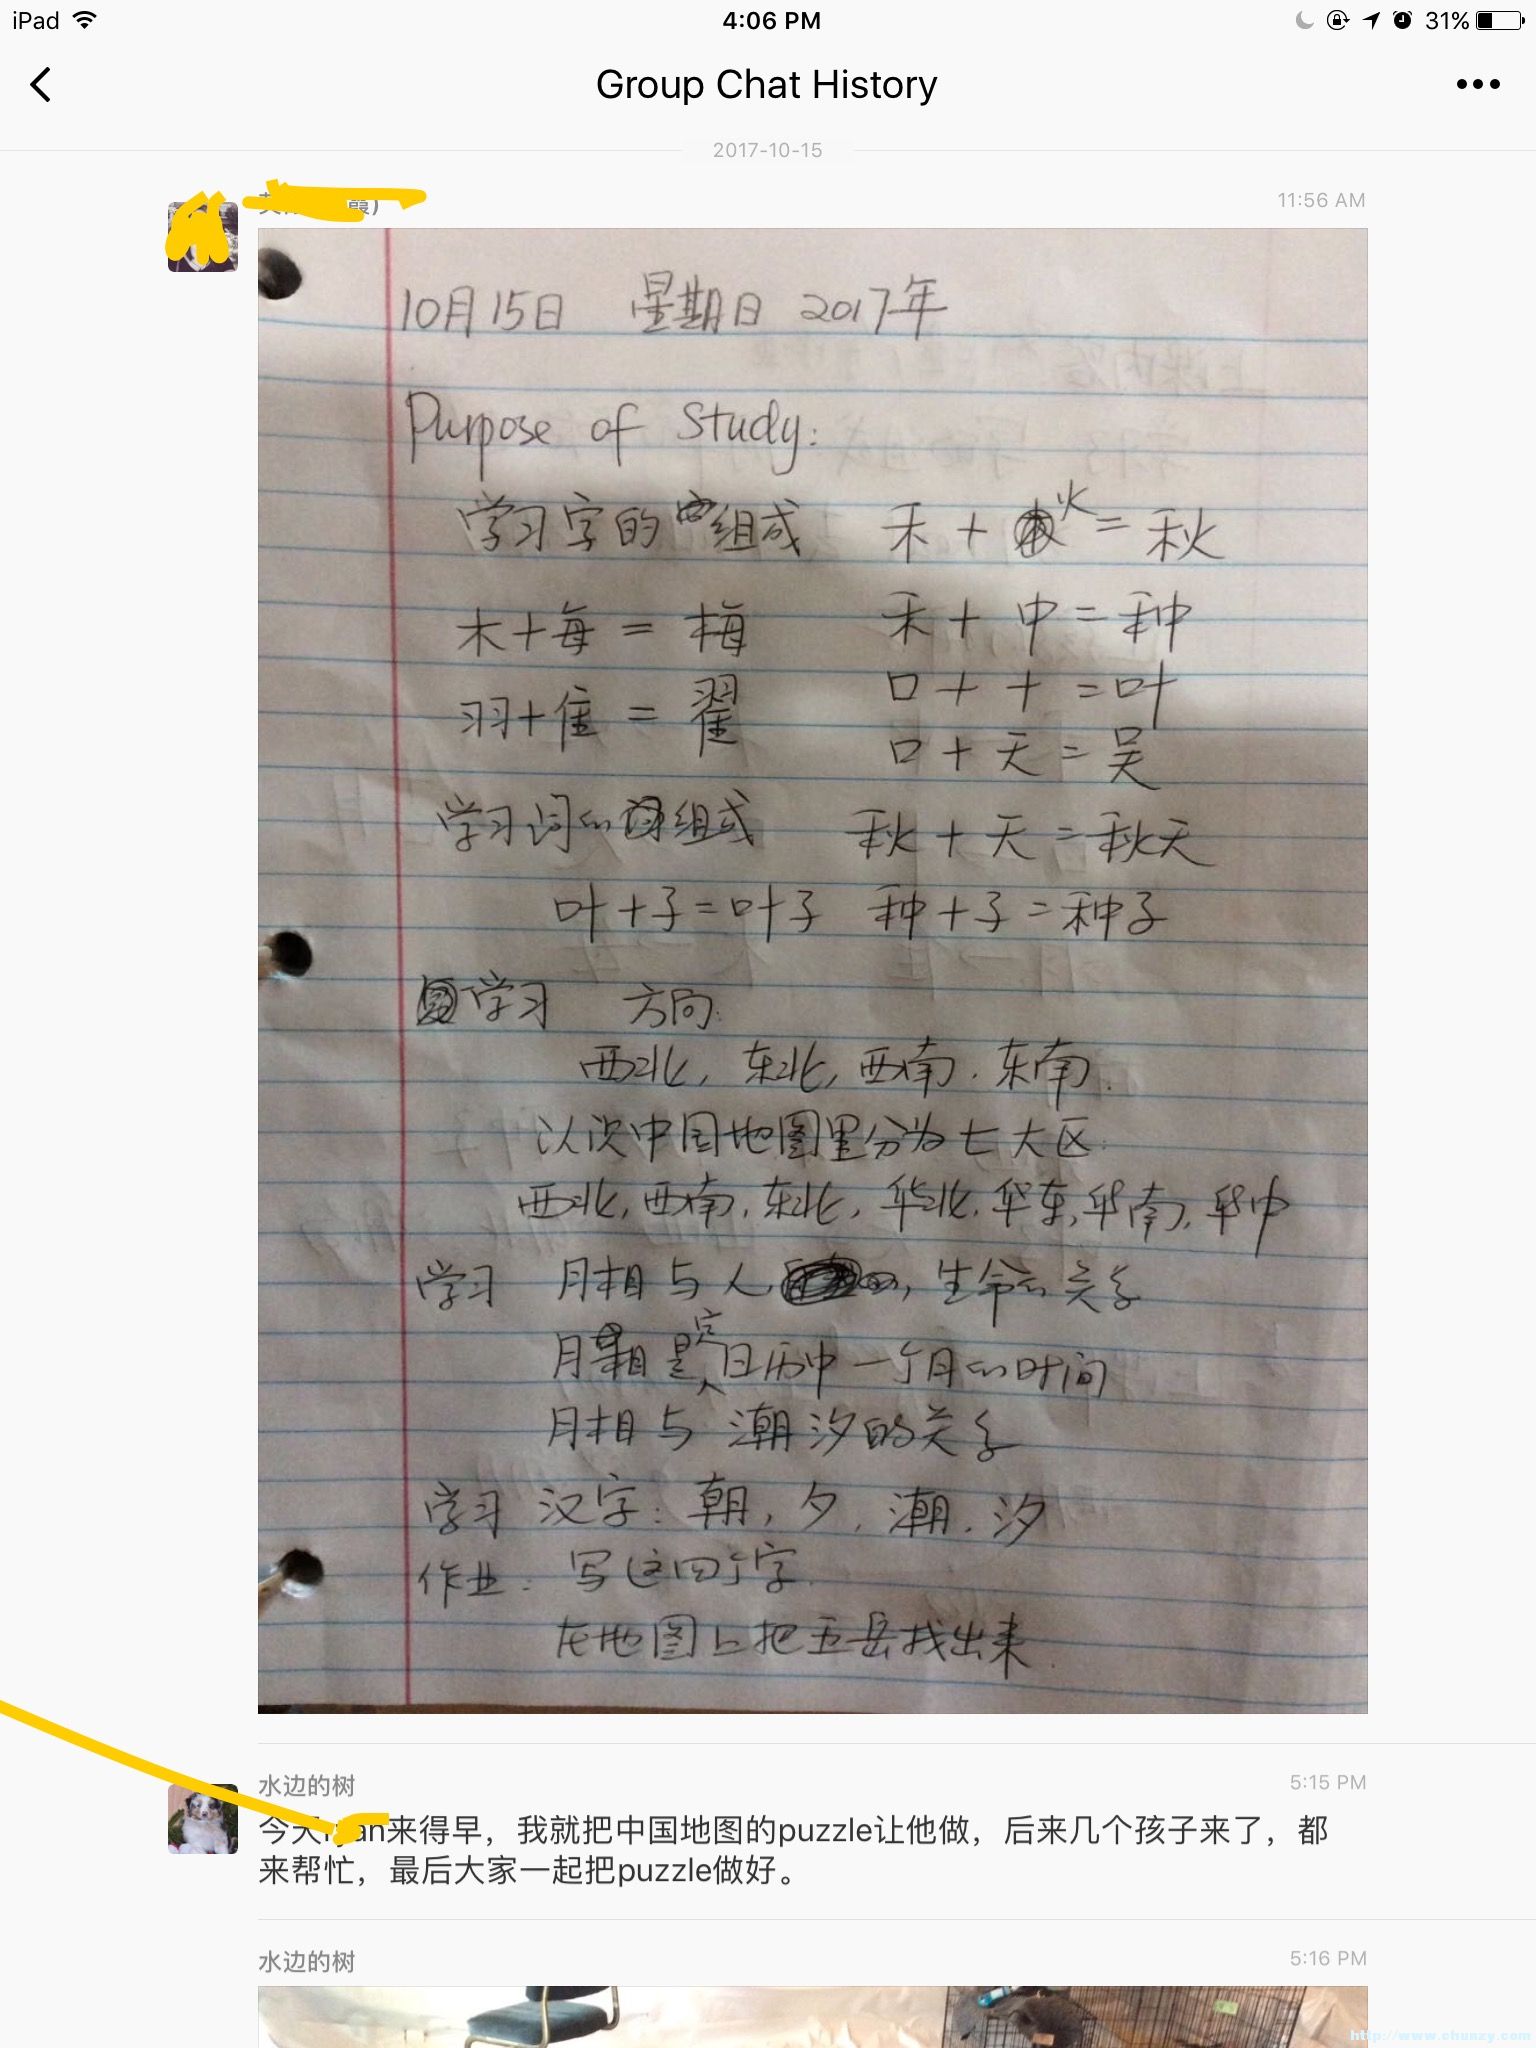 iPad
4:06 PM
31%
Group Chat History
2017-10-15
霞)
11:56 AM
10月15日 星期日 2017年
Purpose of Study:
学习字的组成 禾 + 火 = 秋
木+每 = 梅 禾 + 中 = 种
羽+隹 = 翟 口 + 十 = 叶
口 + 天 = 吴
学习词的组成 秋 + 天 = 秋天
叶+子=叶子 种+子=种子
学习 方向:
西北, 东北, 西南, 东南.
以次中国地图里分为七大区:
西北, 西南, 东北, 华北, 华东, 华南, 华中
学习 月相与人, 生命的关系
月相是定日历中一个月的时间
月相与潮汐的关系
学习 汉字: 朝, 夕, 潮, 汐
作业: 写这四个字.
在地图上把五岳找出来
水边的树
5:15 PM
今天来得早，我就把中国地图的puzzle让他做，后来几个孩子来了，都
来帮忙，最后大家一起把puzzle做好。
水边的树
5:16 PM
http://www.chunzy.com